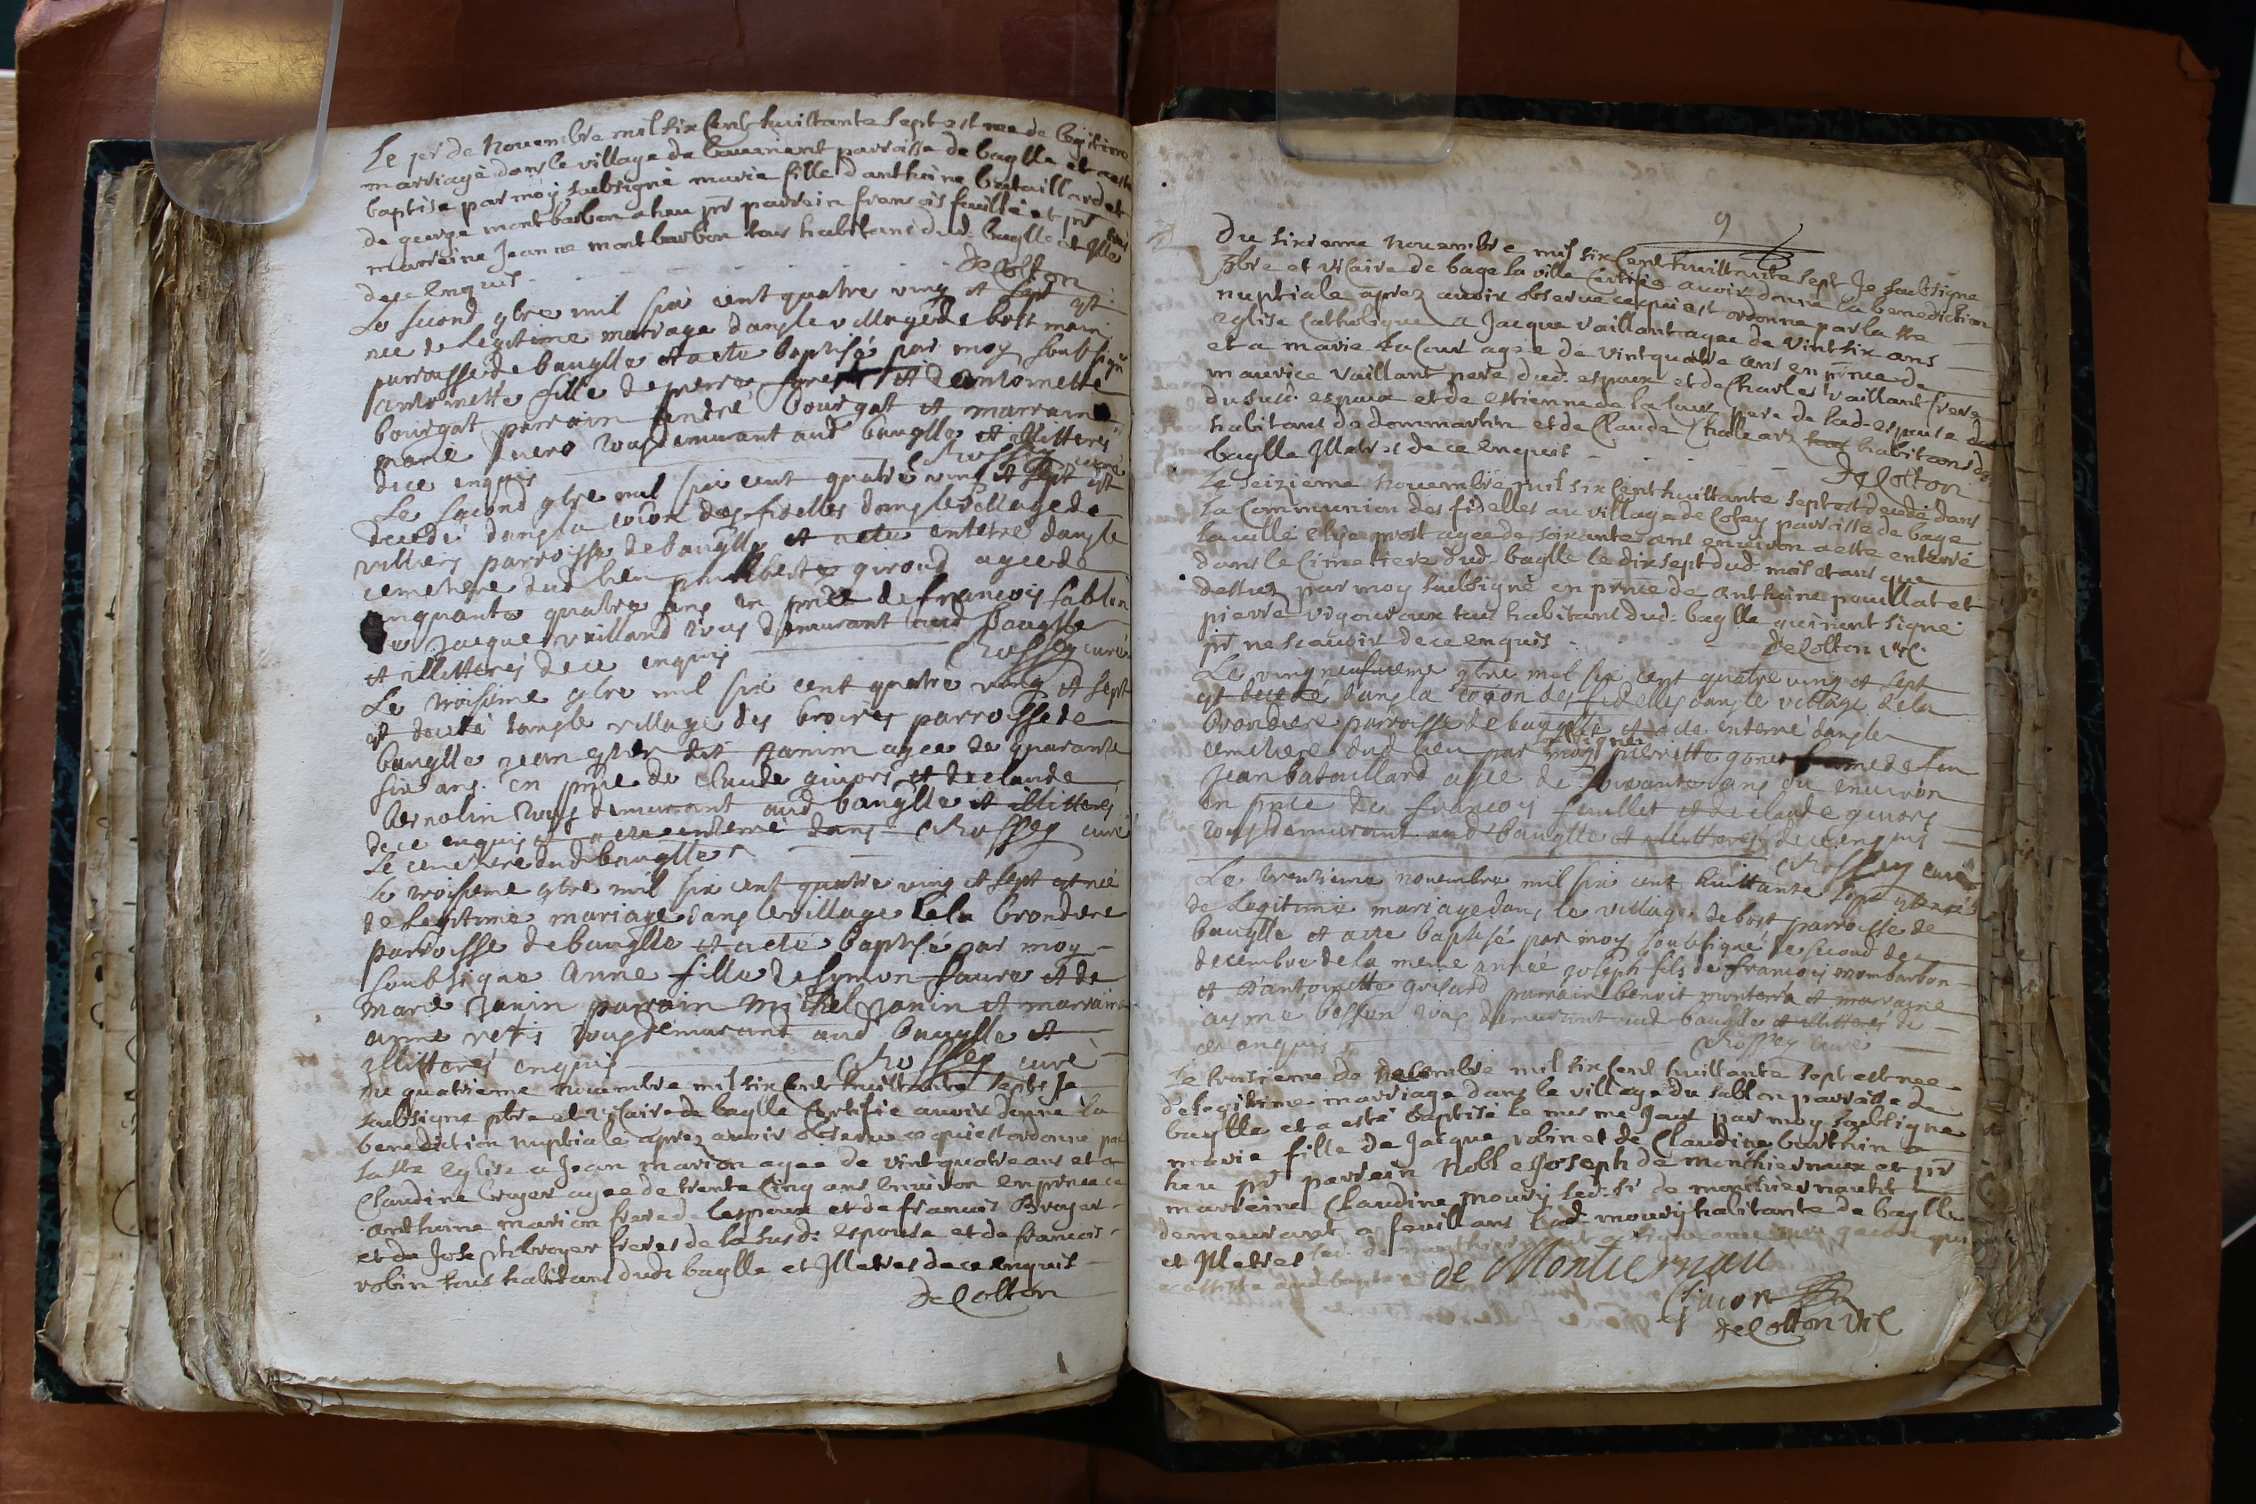 Le jer de Novembre mil six cent huittante sept est nee de legitime
marriage dans le village de parroisse de baglle et a este
baptise par moy soubsigné marie fille d'anthoine bataillard et
de george montbarbon a heu pr parrein francois feuille et pr
marreine Jeanne montbarbon tous habitans dud. baglle et Illes
de ce enquis
DeColton
Le second 9bre mil six cent quatre ving et sept est
nee de legitime mariage dans le village de bost
parroisse de bauglle et a ete baptisé par moy soubsigné
antoinette fille de pierre et de antoinette
bourgat parrain andré bourgat et marraine
marie tous demurant aud bauglle et illitteres
de ce enquis Rossey curé
Le second 9bre mil six cent quatre ving et sept est
decedé dans la coion des fidelles dans le village de
villiers parroisse de bauglle et a ete enterré dans le
cemetiere dud lieu giroud agee de
cinquante quatre ans en pnce de francois sablon
Jacque vailland tous demurant aud bauglle
et illitterés de ce enquis Rossey curé
Le troisieme 9bre mil six cent quatre ving et sept
est decedé dans le village des broires parroisse de
bauglle Jean dit Janin agee de quarante
six ans en pnce de Claude givors et de claude
bernolin tous demurant aud bauglle et illitterés
de ce enquis et a ete enterré dans Rossey curé
Le cemetiere dud bauglle
Le troisieme 9bre mil six cent quatre ving et sept est née
de legitime mariage dans le village de la brondiere
parroisse de bauglle et a eté baptisé par moy
soubsigne anne fille de symon faure et de
marie Janin parrain michel Janin et marraine
anne tous demurant aud bauglle et
illitterés enquis Rossey curé
Du quatrieme novembre mil six cent huittante sept Je
soubsigne ptre et vicaire de baglle Certifie auoir donne la
benediction nuptiale aprez auoir observe ce qui est ordonne par
la ste eglise a Jean marion agee de vint quatre ans et a
Claudine broyer agee de trente cinq ans environ en presence
anthoine marion frere de lespoux et de francois Broyer
et de Joseph broyer freres de la susd. espouse et de francois
robin tous habitans dud. baglle et Illetres de ce enquis
DeColton
9
Du sixieme novembre mil six cent huittante sept Je soubsigne
ptre et vicaire de bage la ville Certifie avoir donne la benediction
nuptiale aprez avoir observe ce qui est ordonne par la ste
eglise Catholique a Jacque vaillant agee de vint six ans
et a marie lacour agee de vint quatre ans en pnce de
maurice vaillant pere dud. espoux et de Charles vaillant frere
du susd. espoux et de estienne de lacour pere de lad. espouse
habitans de dommartin et de Claude habitans de
baglle Illetres de ce enquist
DeColton
Le seizieme novembre mil six cent huittante sept est decedé dans
la Communion des fidelles au village de Cofey parroisse de bage
la ville agee de soixante ans environ a este enterré
dans le Cimetiere dud. baglle le dix sept dud. mois et ans que
dessus par moy soubsigné en pnce de anthoine pouillat et
pierre vigouroux tous habitans dud. baglle qui n'ont signé
pr ne scavoir de ce enquis
DeColton vic.
Le ving neufvieme 9bre mil six cent quatre ving et sept
est decedé dans la coion des fidelles dans le village de la
brondiere parroisse de bauglle et a ete enterré dans le
cemetiere dud lieu par moy pierrette femme de feu
Jean batouillard agee de soixante ans ou environ
en pnce de francois feuillet et de claude givors
tous demurant aud bauglle et illitterés de ce enquis
Rossey curé
Le trentieme novembre mil six cent huittante sept est né
de legitime mariage dans le village de bost parroisse de
bauglle et a ete baptisé par moy soubsigné le second de
decembre de la meme année Joseph fils de francois mombarbon
et d'antoinette grisard parrain benoit monterra et marraine
ayme besson tous demurant aud bauglle et illitterés de
ce enquis Rossey curé
Le troisieme de decembre mil six cent huittante sept est nee
de legitime marriage dans le village du sablon parroisse de
baglle et a esté baptisé le mesme Jour par moy soubsigné
marie fille de Jacque robin et de Claudine barthin a
heu pr parrein noble Joseph de monthiernaux et pr
marreine Claudine moury led. sr de monthiernault
demeurant a feuillans lad. moury habitante de baglle
et Illetres
de Montiernau
Chacon
DeColton Vic